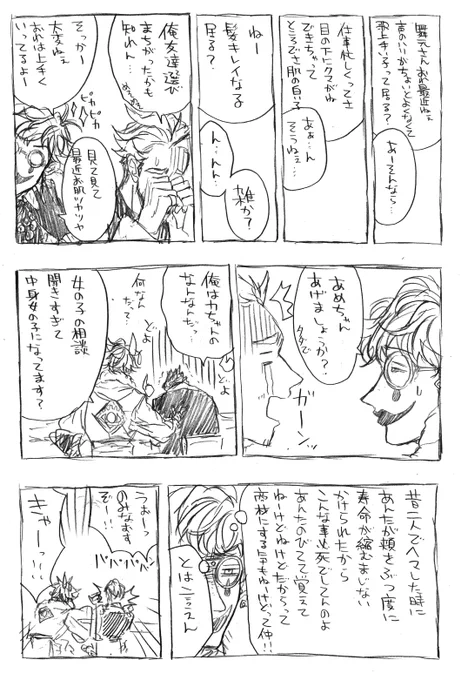 舞元さんおれ最近ねぇ
声のいいがちないとよくなくて
歌上手い子って居る？
あーそんなら…
仕事忙しくってさ
目の下にクマがね
できちゃって
ところでさ肌の白い子
あぁ…ん
そうねぇ…
ねー
髪キレイな子
居る？
ん…ん…
雑か？
俺友達選び
まちがったかも
知れん…
見て見て
最近お肌ツヤツヤ
ピカピカ
そっかー
大変ねぇ
おれは上手く
いってるよー
あめちゃん
あげましょうか？
タダで
ガーンッ
俺は力ちゃんの
なんなんだっ…
何なん
だって…
どよ
どよ
女の子の相談
聞きすぎて
中身女の子になってます？
昔二人でヘマした時に
あんたが頬をぶつ度に
寿命が縮むまじない
かけられたから
こんな事も死でしてんのよ
あんたのびてて覚えて
ねーけどねけどだからって
とは言えん
うおーっ
のみなおす
ぞー!!
バババババ
きゃーっ!!